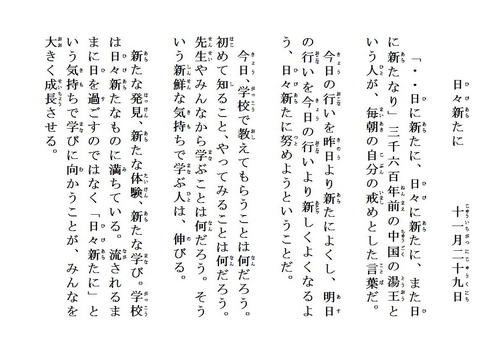 日々新たに　　十一月二十九日
「・・日に新たに、日々に新たに、また日
に新たなり」三千六百年前の中国の湯王と
いう人が、毎朝の自分の戒めとした言葉だ。
今日の行いを昨日より新たによくし、明日
の行いを今日の行いより新しくよくなるよ
う、日々新たに努めようということだ。
今日、学校で教えてもらうことは何だろう。
初めて知ること、やってみることは何だろう。
先生やみんなから学ぶことは何だろう。そう
いう新鮮な気持ちで学ぶ人は、伸びる。
新たな発見、新たな体験、新たな学び。学校
は日々新たなものに満ちている。流されるま
まに日を過ごすのではなく「日々新たに」と
いう気持ちで学びに向かうことが、みんなを
大きく成長させる。